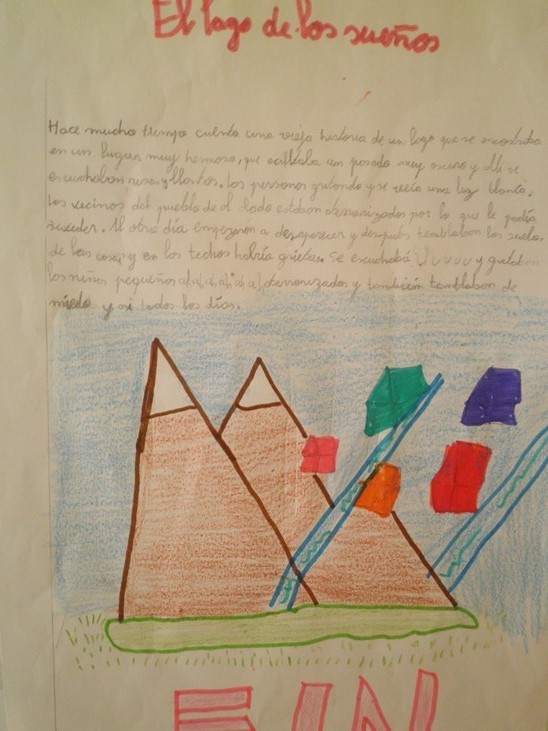 El lago de los sueños
Hace mucho tiempo cuenta una vieja historia de un lago que se encontraba
en un lugar muy hermoso, que ocultaba un pasado muy oscuro y allí se
escuchaban risas y llantos. Las personas gritando y se veía una luz blanca.
Los vecinos del pueblo de al lado estaban aterrorizados por lo que le podía
suceder. Al otro día empezaron a desaparecer y después temblaban los suelos
de las casas y en los techos había grietas. Se escuchaba y gritaban
los niños pequeños aterrorizados y también temblaban de
miedo y así todos los días.
FIN